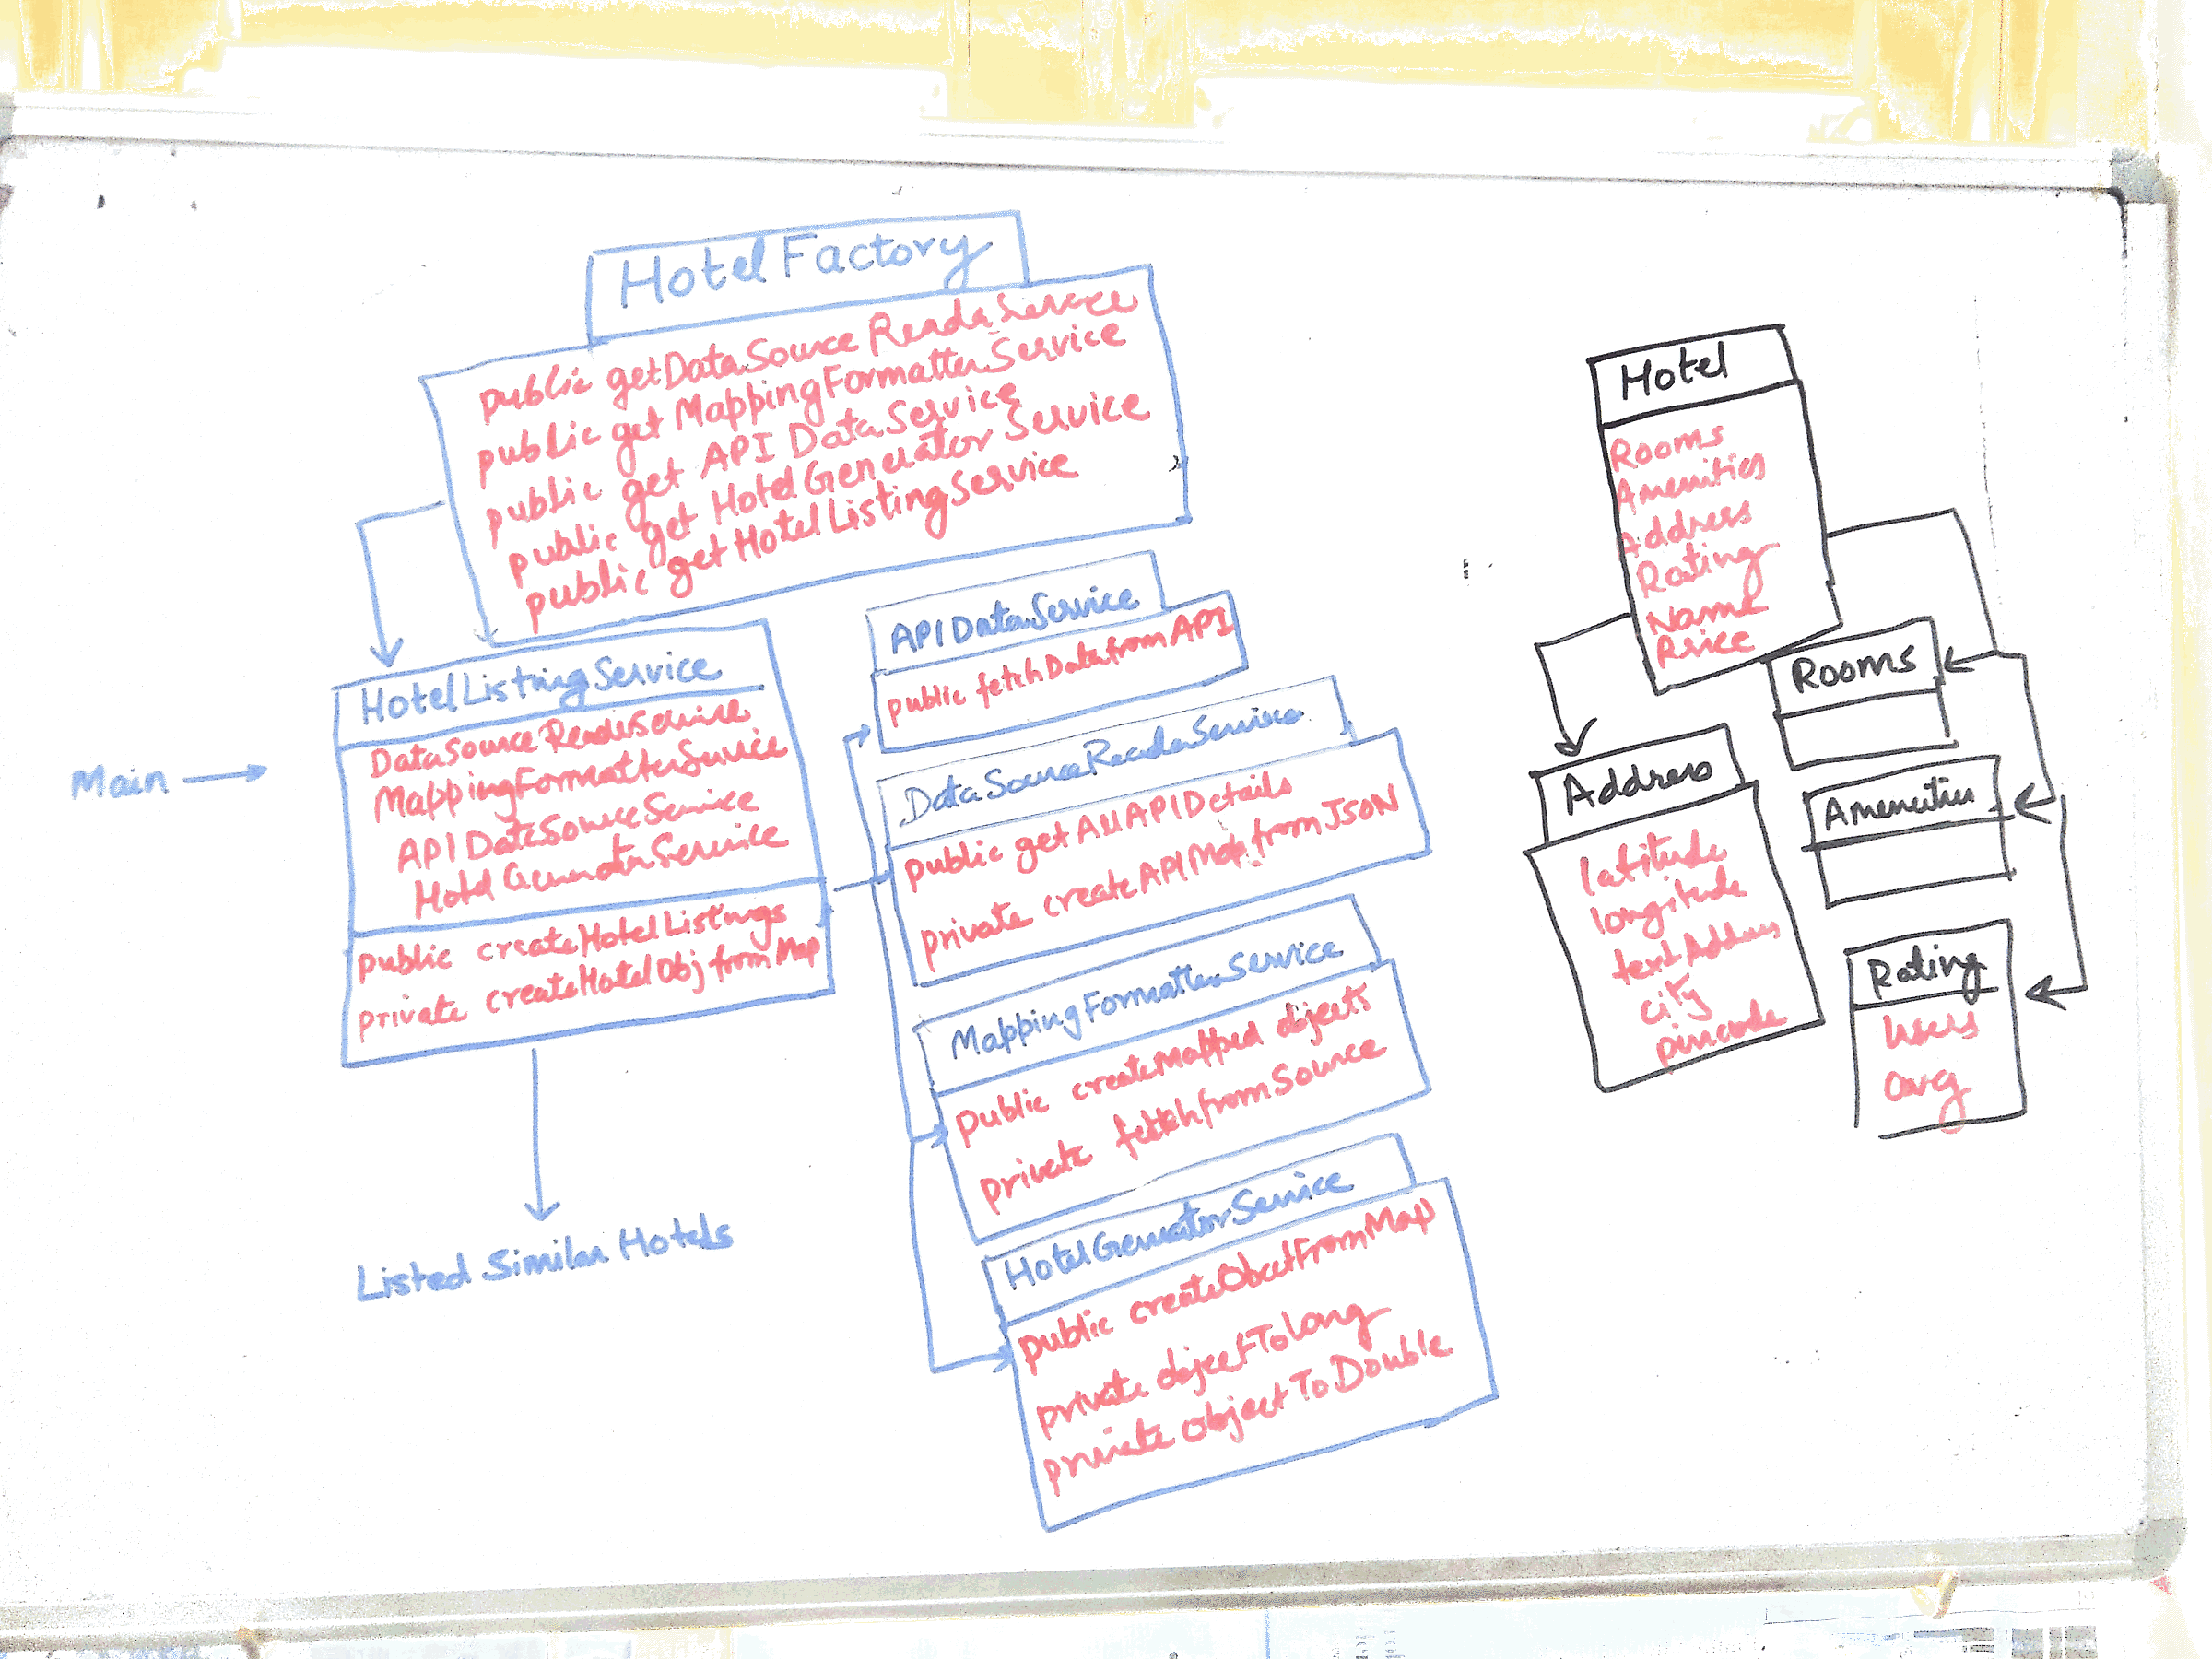 Hotel Factory
public getDataSource ReaderService
public get MappingFormatterService
public get API DataService
public get HotelGenerator Service
public get HotelListingService
Main
HotelListingService
DataSource ReaderService
MappingFormatterService
API DataSourceService
Hotel GeneratorService
public createHotelListings
private createHotelObj from Map
Listed Similar Hotels
API DataService
public fetchDatafromAPI
DataSourceReaderService
public getAllAPIDetails
private createAPIMap from JSON
MappingFormatterService
public createMapped objects
private fetchfromSource
HotelGeneratorService
public createObectFromMap
private objectToLong
private objectToDouble
Hotel
Rooms
Amenities
Address
Rating
Name
Price
Rooms
Address
latitude
longitude
textAddress
city
pincode
Amenities
Rating
Users
avg